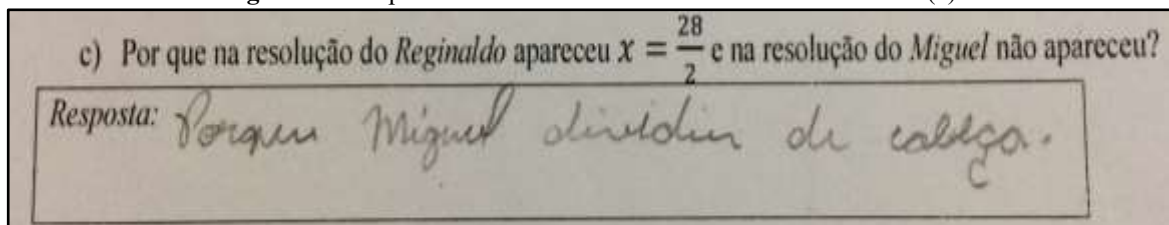 c) Por que na resolução do Reginaldo apareceu x = 28/2 e na resolução do Miguel não apareceu?
Resposta: Porque Miguel dividiu de cabeça.